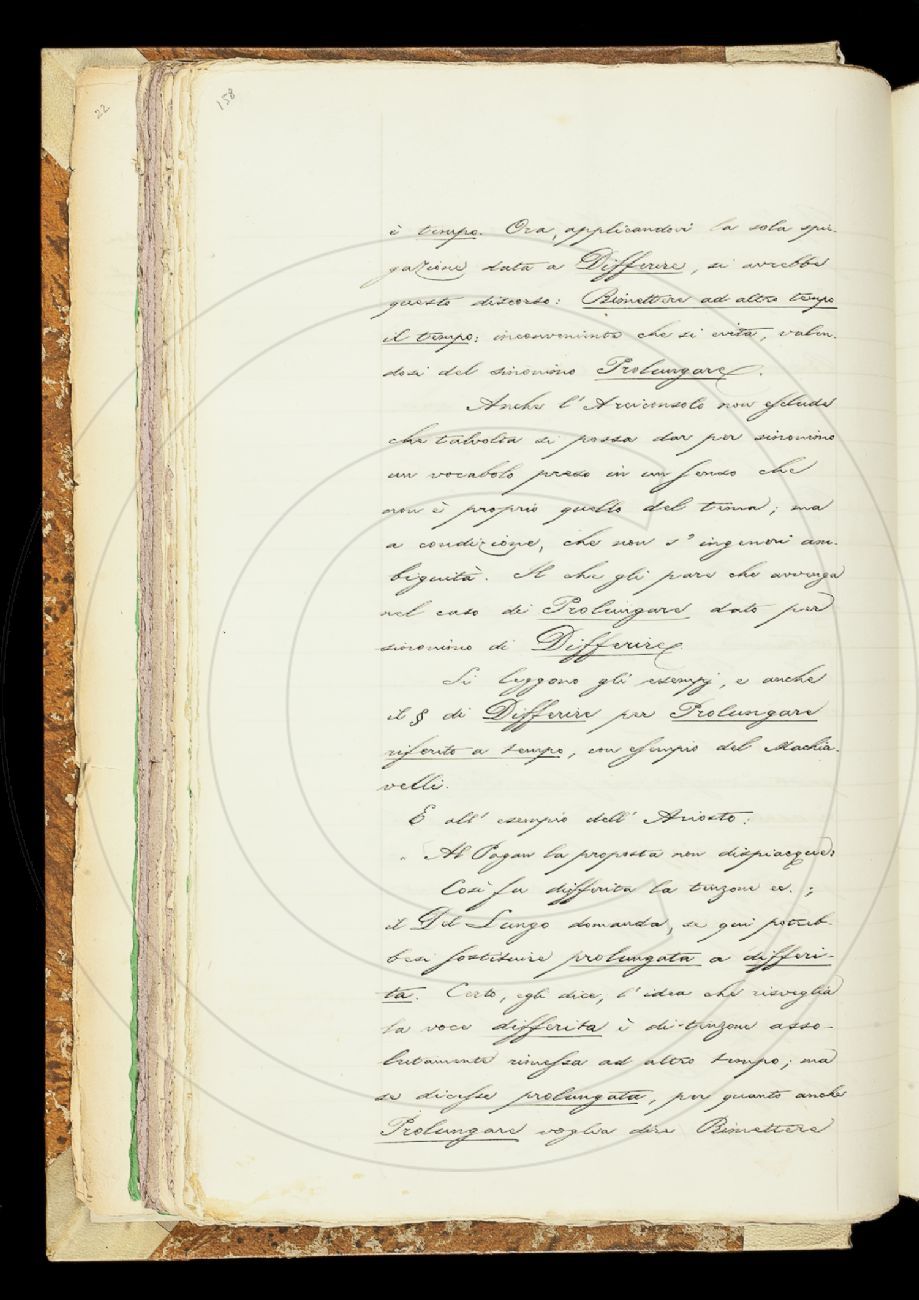 22
158
è tempo. Ora, applicandovi la sola spie-
gazione data a Differire, si avrebbe
questo discorso: Rimettere ad altro tempo
il tempo; inconveniente che si evita, valen-
dosi del sinonimo Prolungare.
Anche l'Arciconsolo non esclude
che talvolta si possa dar per sinonimo
un vocabolo preso in un senso che
non è proprio quello del tema; ma
a condizione, che non s'ingeneri am-
biguità. Il che gli pare che avvenga
nel caso di Prolungare dato per
sinonimo di Differire.
Si leggono gli esempj, e anche
il § di Differire per Prolungare
riferito a tempo, con esempio del Machia-
velli.
E all'esempio dell'Ariosto:
Al Pagan la proposta non dispiacque:
Così fu differita la tenzone ec.;
il Del Lungo domanda, se qui potreb-
besi sostituire prolungata a differi-
ta. Certo, egli dice, l'idea che risveglia
la voce differita è di tenzone asso-
lutamente rimessa ad altro tempo; ma
se dicesse prolungata, per quanto anche
Prolungare voglia dire Rimettere